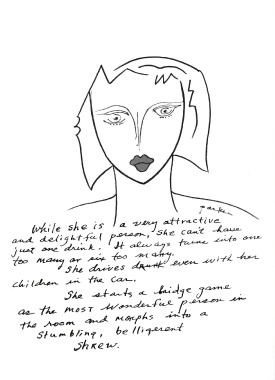 parker
While she is a very attractive
and delightful person, she can't have
just one drink. It always turns into one
too many or six too many.
She drives drunk even with her
children in the car.
She starts a bridge game
as the most wonderful person in
the room and morphs into a
stumbling, belligerent
shrew.